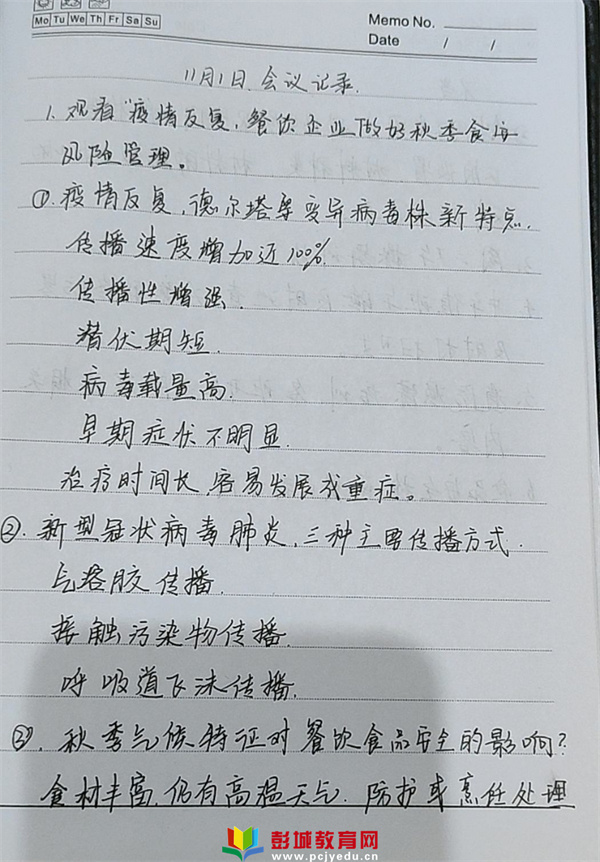 Mo Tu We Th Fr Sa Su
Memo No.
Date / /
11月1日 会议记录.
1. 观看"疫情反复,餐饮企业做好秋季食安
风险管理。
①.疫情反复,德尔塔等变异病毒株新特点.
传播速度增加近100%.
传播性增强.
潜伏期短.
病毒载量高.
早期症状不明显.
治疗时间长,容易发展成重症。
②.新型冠状病毒肺炎,三种主要传播方式.
气溶胶传播.
接触污染物传播.
呼吸道飞沫传播.
③.秋季气候特征对餐饮食品安全的影响?
食材丰富,仍有高温天气.防护或烹饪处理
彭城教育网
www.pcjyedu.cn